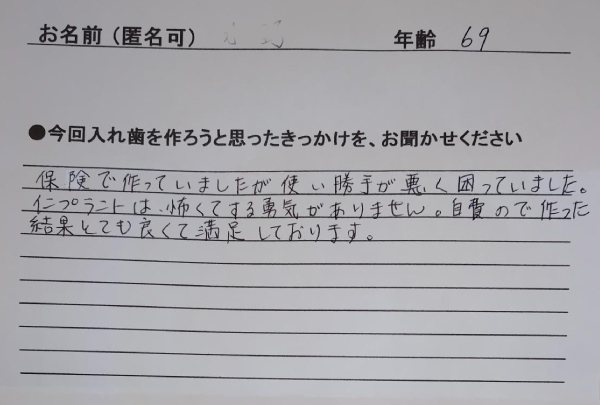 お名前（匿名可） 年齢 69
●今回入れ歯を作ろうと思ったきっかけを、お聞かせください
保険で作っていましたが使い勝手が悪く困っていました。
インプラントは、怖くてする勇気がありません。自費ので作った
結果とても良くて満足しております。